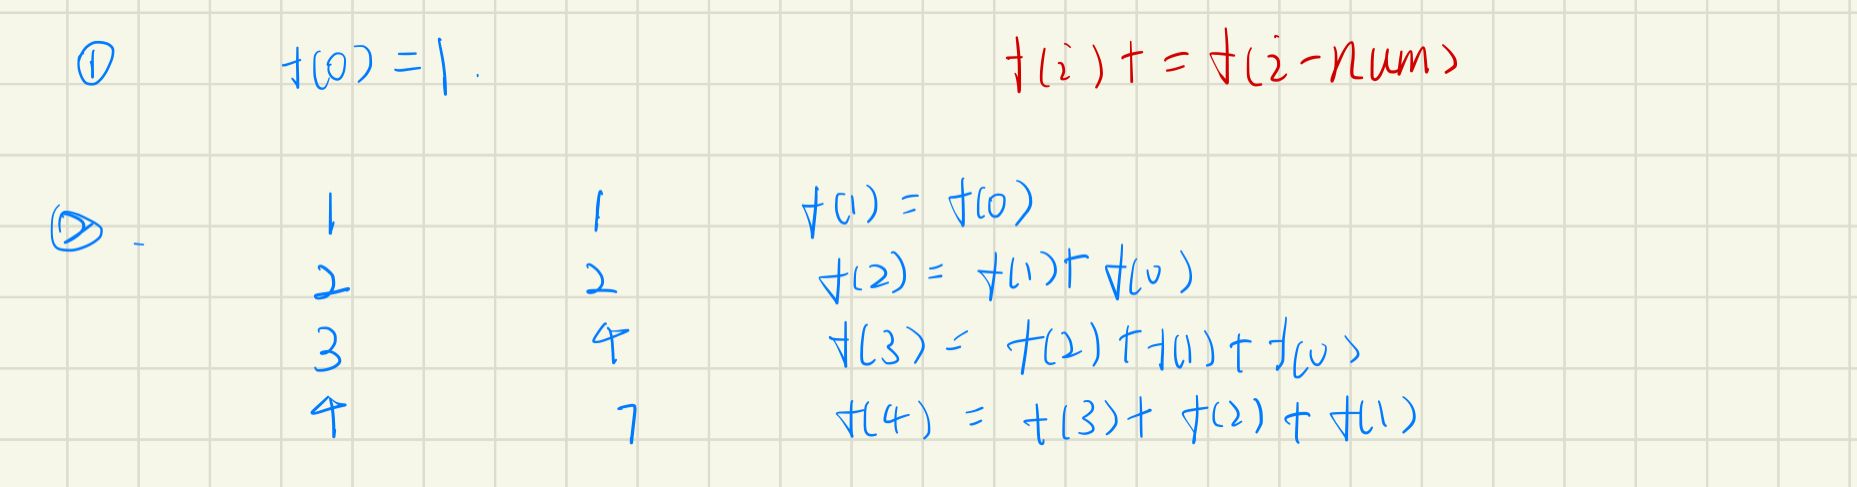 ① f(0) = 1. f(i) += f(i-num)
② - 1 1 f(1) = f(0)
2 2 f(2) = f(1) + f(0)
3 4 f(3) = f(2) + f(1) + f(0)
4 7 f(4) = f(3) + f(2) + f(1)